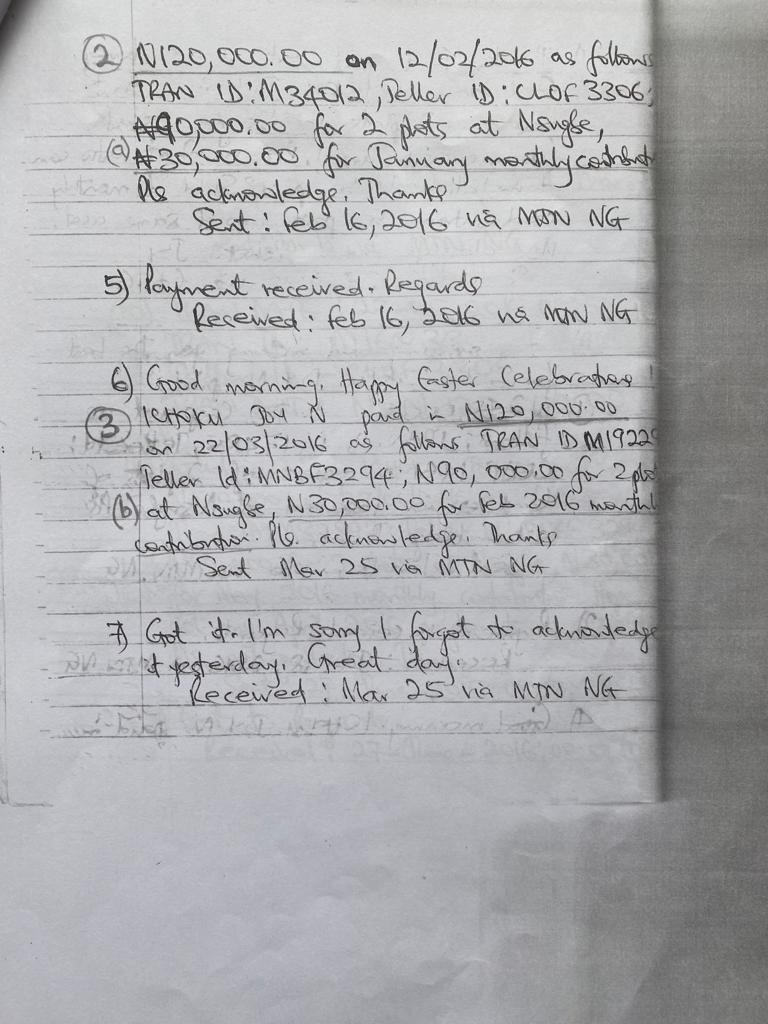 ② N120,000.00 on 12/02/2016 as follows
TRAN ID: M34012, Teller ID: CLOF 3306;
₦90,000.00 for 2 plots at Nsugbe,
(a) ₦30,000.00 for January monthly contribut
Pls acknowledge. Thanks
Sent: Feb 16, 2016 via MTN NG
5) Payment received. Regards
Received: Feb 16, 2016 via MTN NG
6) Good morning. Happy Easter Celebrations!
③ ICHOKU Joy N paid in N120,000.00
on 22/03/2016 as follows: TRAN ID M1922
Teller Id: MNBF3294; N90,000.00 for 2 plo
(b) at Nsugbe, N30,000.00 for Feb 2016 monthl
contribution. Pls. acknowledge. Thanks
Sent Mar 25 via MTN NG
7) Got it. I'm sorry I forgot to acknowledge
it yesterday. Great day.
Received: Mar 25 via MTN NG